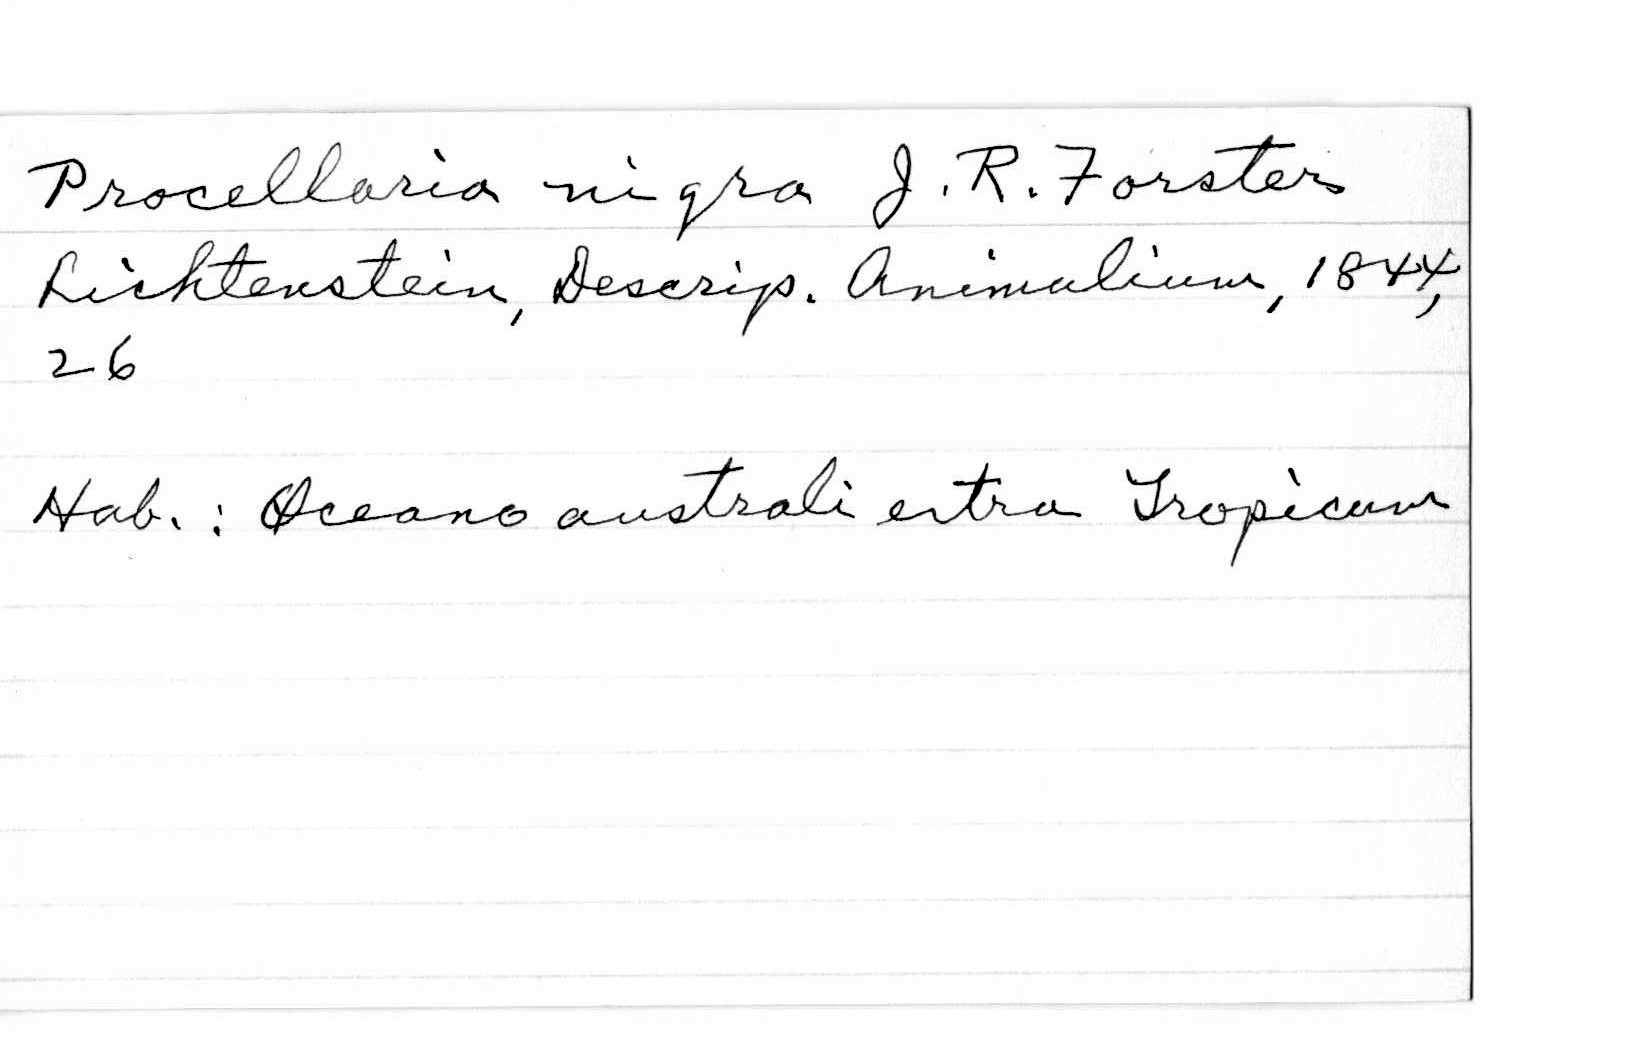 Procellaria nigra J. R. Forster
Lichtenstein, Descrip. Animalium, 1844,
26
Hab. : Oceano australi extra Tropicum